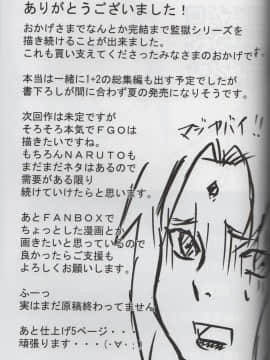 ありがとうございました！
おかげさまでなんとか完結まで監獄シリーズを
描き続けることが出来ました。
これも買い支えてくださったみなさまのおかげです
本当は一緒に1+2の総集編も出す予定でしたが
書下ろしが間に合わず夏の発売になりそうです。
次回作は未定ですが
そろそろ本気でFGOは
描きたいですね。
もちろんNARUTOも
まだまだネタはあるので
需要がある限り
続けていけたらと思います。
あとFANBOXで
ちょっとした漫画とか
画きたいと思っているので
良かったらご支援も
よろしくお願いします。
ふーっ
実はまだ原稿終わってません
あと仕上げ5ページ・・・
頑張ります・・・(・∀・；)
マジヤバイ!!